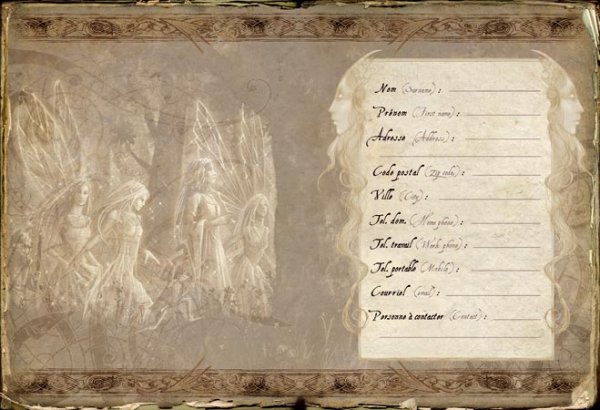 Nom (Surname) :
Prénom (First name) :
Adresse (Address) :
Code postal (Zip code) :
Ville (City) :
Tel. dom. (Home phone) :
Tel. travail (Work phone) :
Tel. portable (Mobile) :
Courriel (email) :
Personne à contacter (Contact) :